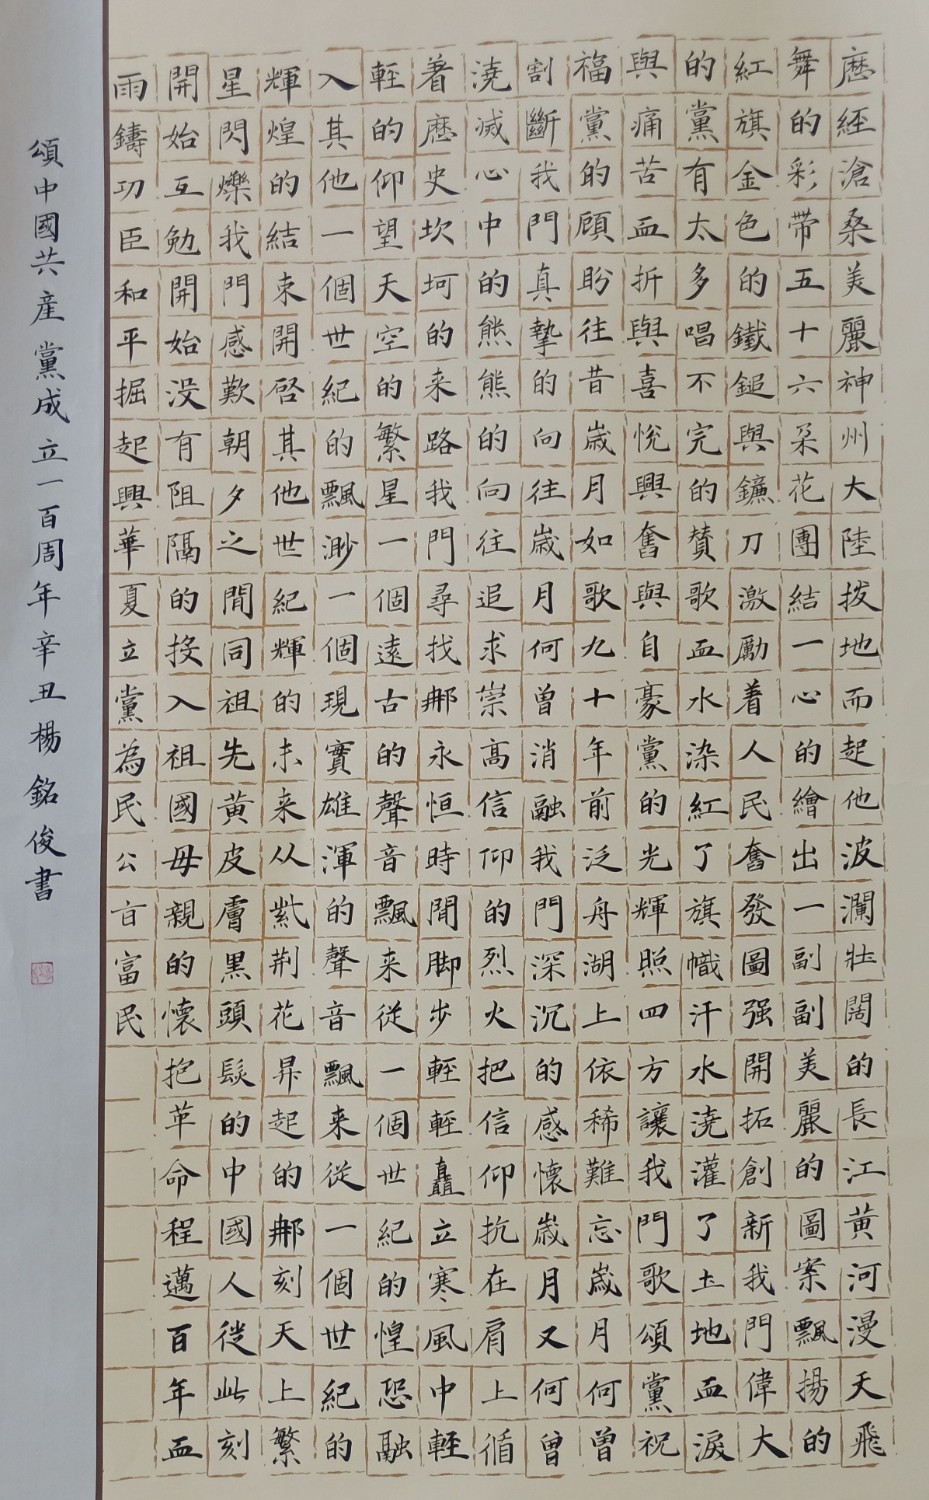 歷經滄桑美麗神州大陸拔地而起他波瀾壯闊的長江黃河漫天飛
舞的彩帶五十六朵花團結一心的繪出一副副美麗的圖案飄揚的
紅旗金色的鐵鎚與鐮刀激勵着人民奮發圖强開拓創新我門偉大
的黨有太多唱不完的贊歌血水染紅了旗幟汗水澆灌了土地血淚
與痛苦血折與喜悅興奮與自豪黨的光輝照四方讓我門歌頌黨祝
福黨的顧盼往昔歲月如歌九十年前泛舟湖上依稀難忘歲月何曾
割斷我門真摯的向往歲月何曾消融我門深沉的感懷歲月又何曾
澆滅心中的熊熊的向往追求崇高信仰的烈火把信仰抗在肩上循
着歷史坎坷的来路我門尋找那永恒時間脚步輕輕矗立寒風中輕
輕的仰望天空的繁星一個遠古的聲音飄来從一個世紀的惶恐融
入其他一個世紀的飄渺一個現實雄渾的聲音飄来從一個世紀的
輝煌的結束開啓其他世紀輝的未来从紫荆花昇起的那刻天上繁
星閃爍我門感歎朝夕之間同祖先黃皮膚黑頭髮的中國人從此刻
開始互勉開始没有阻隔的投入祖國母親的懷抱革命程邁百年血
雨鑄功臣和平掘起興華夏立黨為民公富民
頌中國共產黨成立一百周年辛丑楊銘俊書